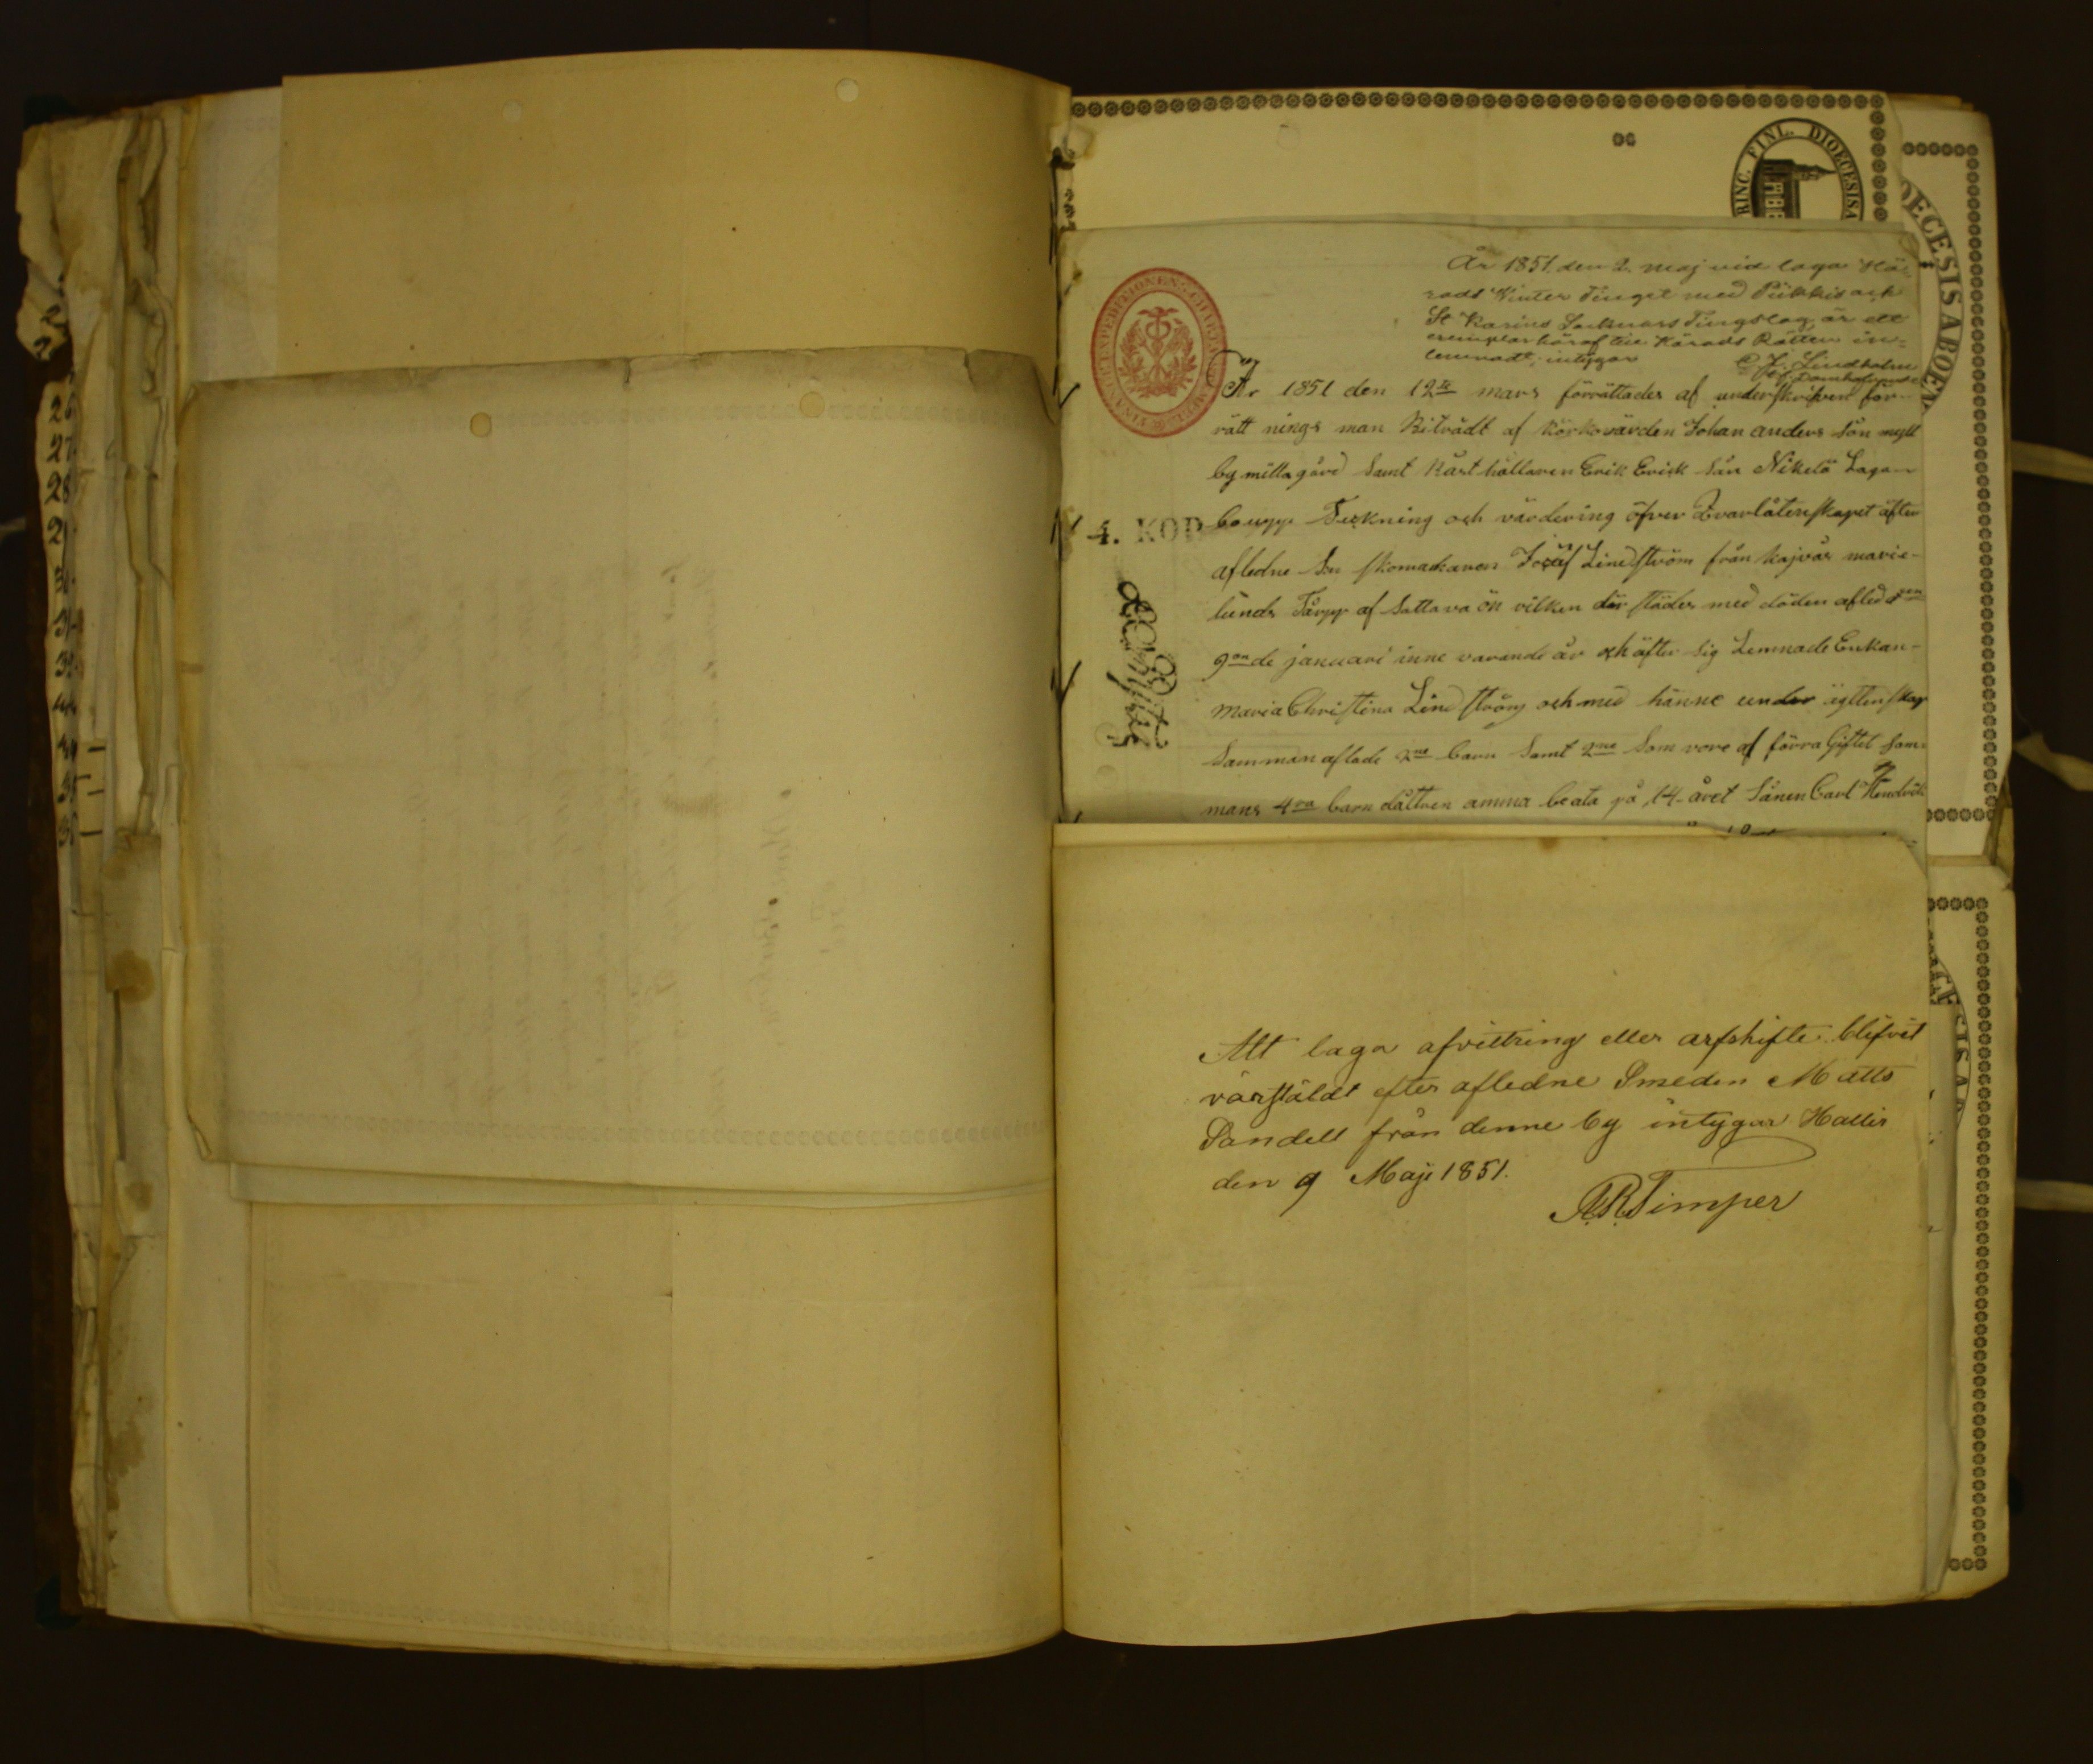 RINC. FINL. DIOECESIS A
OECESIS ABOEN
År 1851 den 2 maj vid laga Hä-
rads Winter Tinget med Piikkis och
St Karins Socknars Tingslag, är ett
exemplar häraf till Härads Rätten in-
lemnadt, intygar
C. J. Lindholm
År 1851 den 12te mars förrättades af underskrifven för-
rätt nings man Biträdt af Körkovärden Johan anders sön myll
by milla gård Samt Råst hållaren Erik Erick Sån Nikelä Laga
bo upp Teckning och värdering öfver Qvarlåtenskapet äfter
afledne Sn skomackaren Josef Lindström från kajvår marie-
lunds Tårpp af Sattava ön vilken där städes med döden afled den
9onde januari inne varande år och äfter sig Lemnade Enkan-
maria Christina Lindström och med hänne under ägttenskap
Samman aflade 2ne barn Samt 2ne Som vore af förra Giftet Sam-
mans 4ra barn dåttren amma beata på 14-året Sånen Carl Hendrik
4. KOP
Att laga afvittring eller arfskifte blifvit
värstäldt efter afledne Smeden Matts
Sandell från denne by intygar Hallis
den 9 Maji 1851.
A.R. Timper
26
27
28
CESISAB